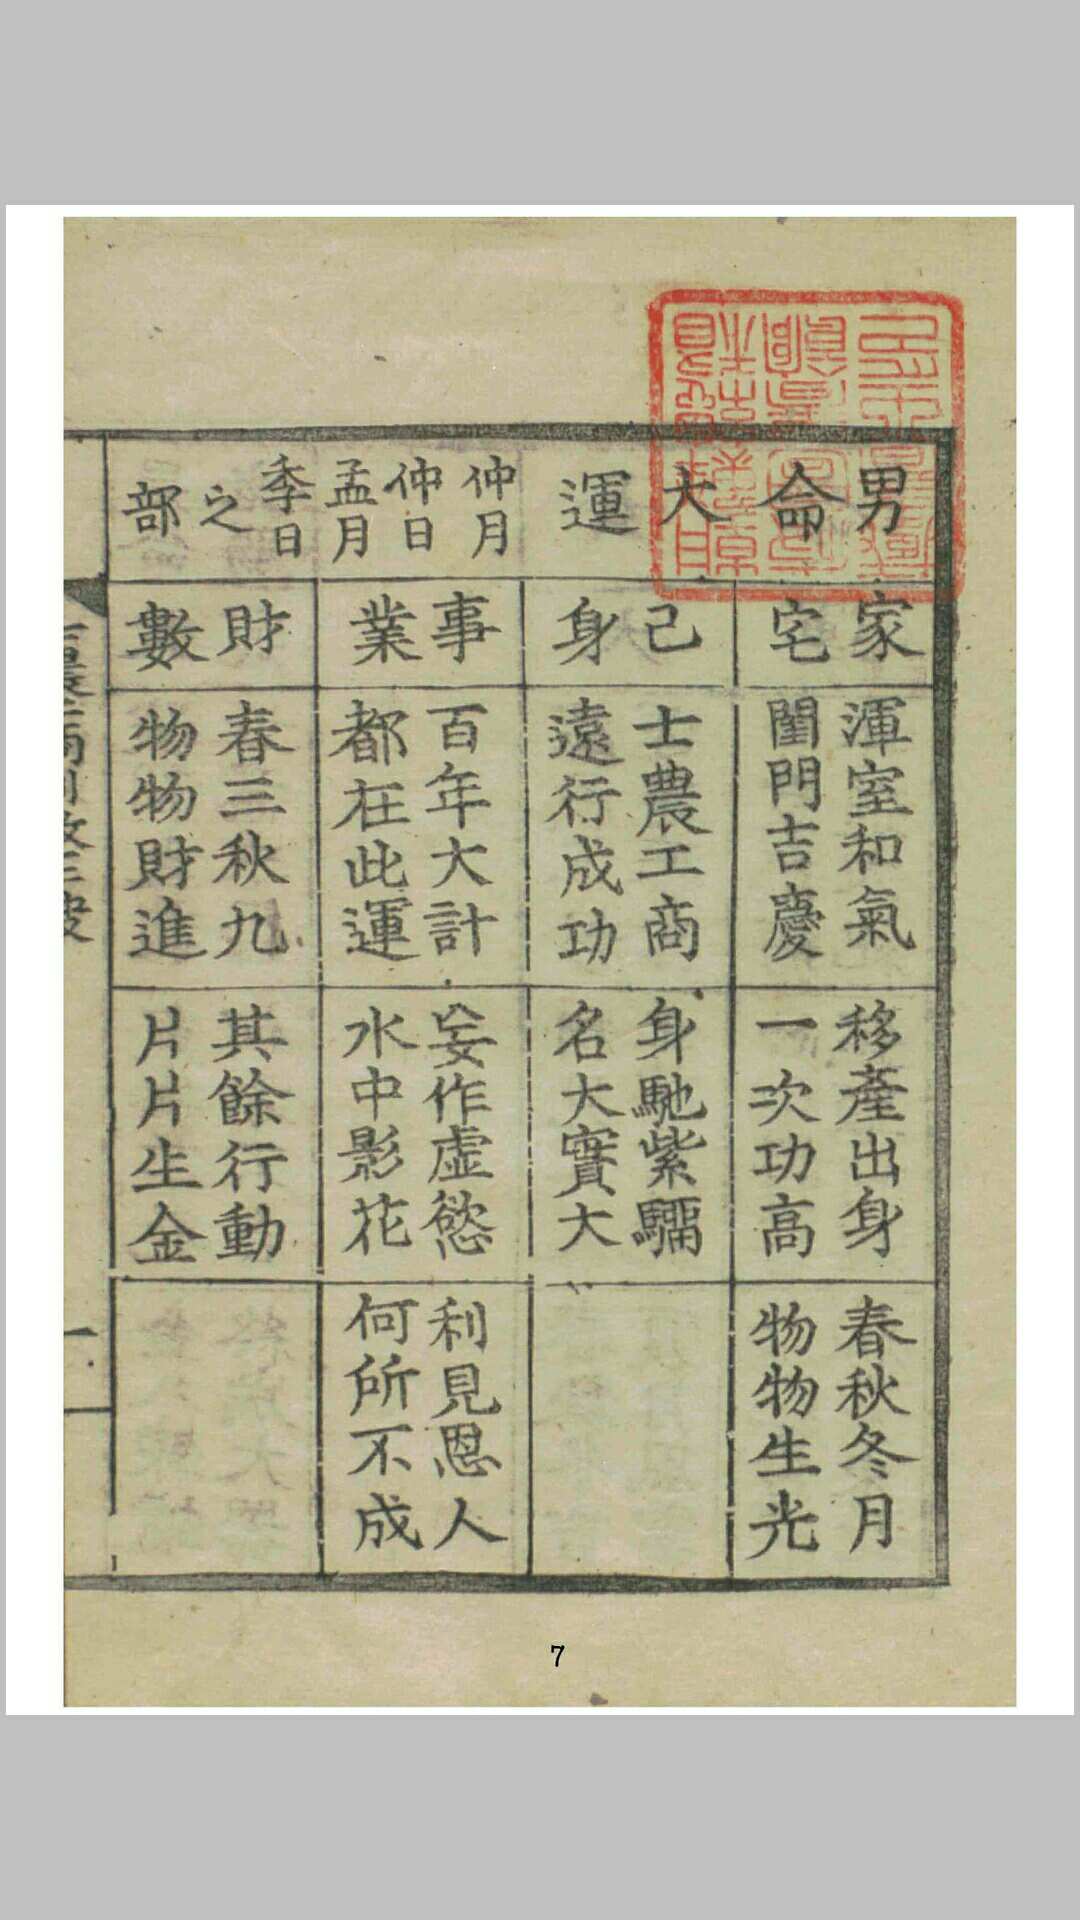 男命大運
仲月
仲日
孟月
季日
之部
家宅
渾室和氣
閨門吉慶
移產出身
一次功高
春秋冬月
物物生光
己身
士農工商
遠行成功
身馳紫騮
名大實大
事業
百年大計
都在此運
妄作虛慾
水中影花
利見恩人
何所不成
財數
春三秋九
物物財進
其餘行動
片片生金
7